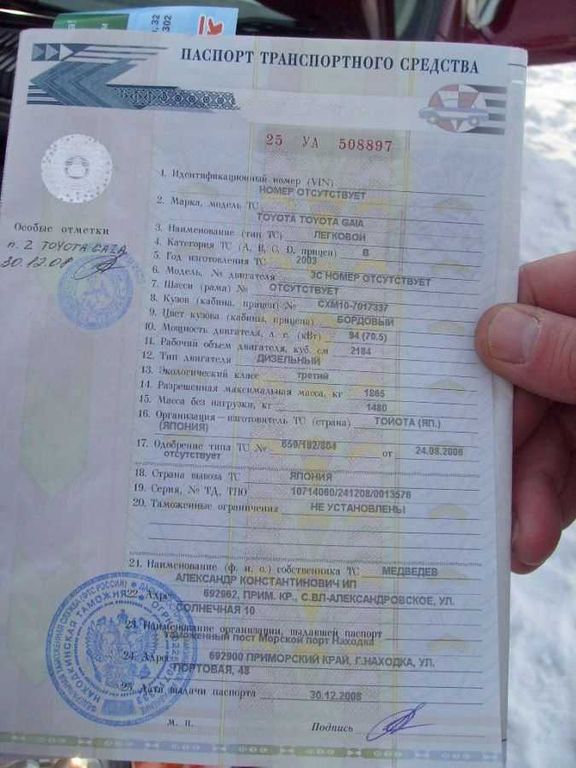 ПАСПОРТ ТРАНСПОРТНОГО СРЕДСТВА
25 УА 508897
1. Идентификационный номер (VIN)
НОМЕР ОТСУТСТВУЕТ
2. Марка, модель ТС
TOYOTA TOYOTA GAIA
Особые отметки
п. 2 TOYOTA GAIA
30.12.08
3. Наименование (тип ТС) ЛЕГКОВОЙ
4. Категория ТС (A, B, C, D, прицеп) B
5. Год изготовления ТС 2003
6. Модель, № двигателя 3С НОМЕР ОТСУТСТВУЕТ
7. Шасси (рама) № ОТСУТСТВУЕТ
8. Кузов (кабина, прицеп) № CXM10-7017337
9. Цвет кузова (кабины, прицепа) БОРДОВЫЙ
10. Мощность двигателя, л. с. (кВт) 94 (70.5)
11. Рабочий объем двигателя, куб. см 2184
12. Тип двигателя ДИЗЕЛЬНЫЙ
13. Экологический класс третий
14. Разрешенная максимальная масса, кг 1865
15. Масса без нагрузки, кг 1480
16. Организация – изготовитель ТС (страна) ТОЙОТА (ЯП.)
(ЯПОНИЯ)
17. Одобрение типа ТС № от 24.08.2006
отсутствует
18. Страна вывоза ТС ЯПОНИЯ
19. Серия, № ТД, ТПО 10714060/241208/0013576
20. Таможенные ограничения НЕ УСТАНОВЛЕНЫ
21. Наименование (ф. и. о.) собственника ТС МЕДВЕДЕВ
АЛЕКСАНДР КОНСТАНТИНОВИЧ ИП
22. Адрес 692962, ПРИМ. КР., С.ВЛ-АЛЕКСАНДРОВСКОЕ, УЛ.
СОЛНЕЧНАЯ 10
23. Наименование организации, выдавшей паспорт
Таможенный пост Морской порт Находка
24. Адрес 692900 ПРИМОРСКИЙ КРАЙ, Г.НАХОДКА, УЛ.
ПОРТОВАЯ, 48
25. Дата выдачи паспорта 30.12.2008
М. П. Подпись
НАХОДКИНСКАЯ ТАМОЖНЯ